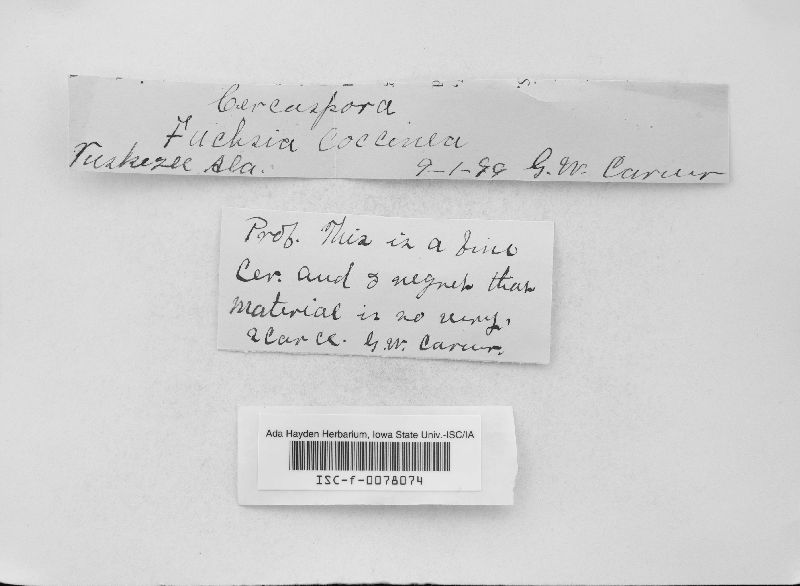 Cercuspora
Fuchsia Coccinea
Tuskegee Ala. 9-1-99 G.W. Carver
Prof. This is a fine
Cer. and I regret that
material is so very.
scarce. G.W. Carver.
Ada Hayden Herbarium, Iowa State Univ.-ISC/IA
ISC-f-0078074